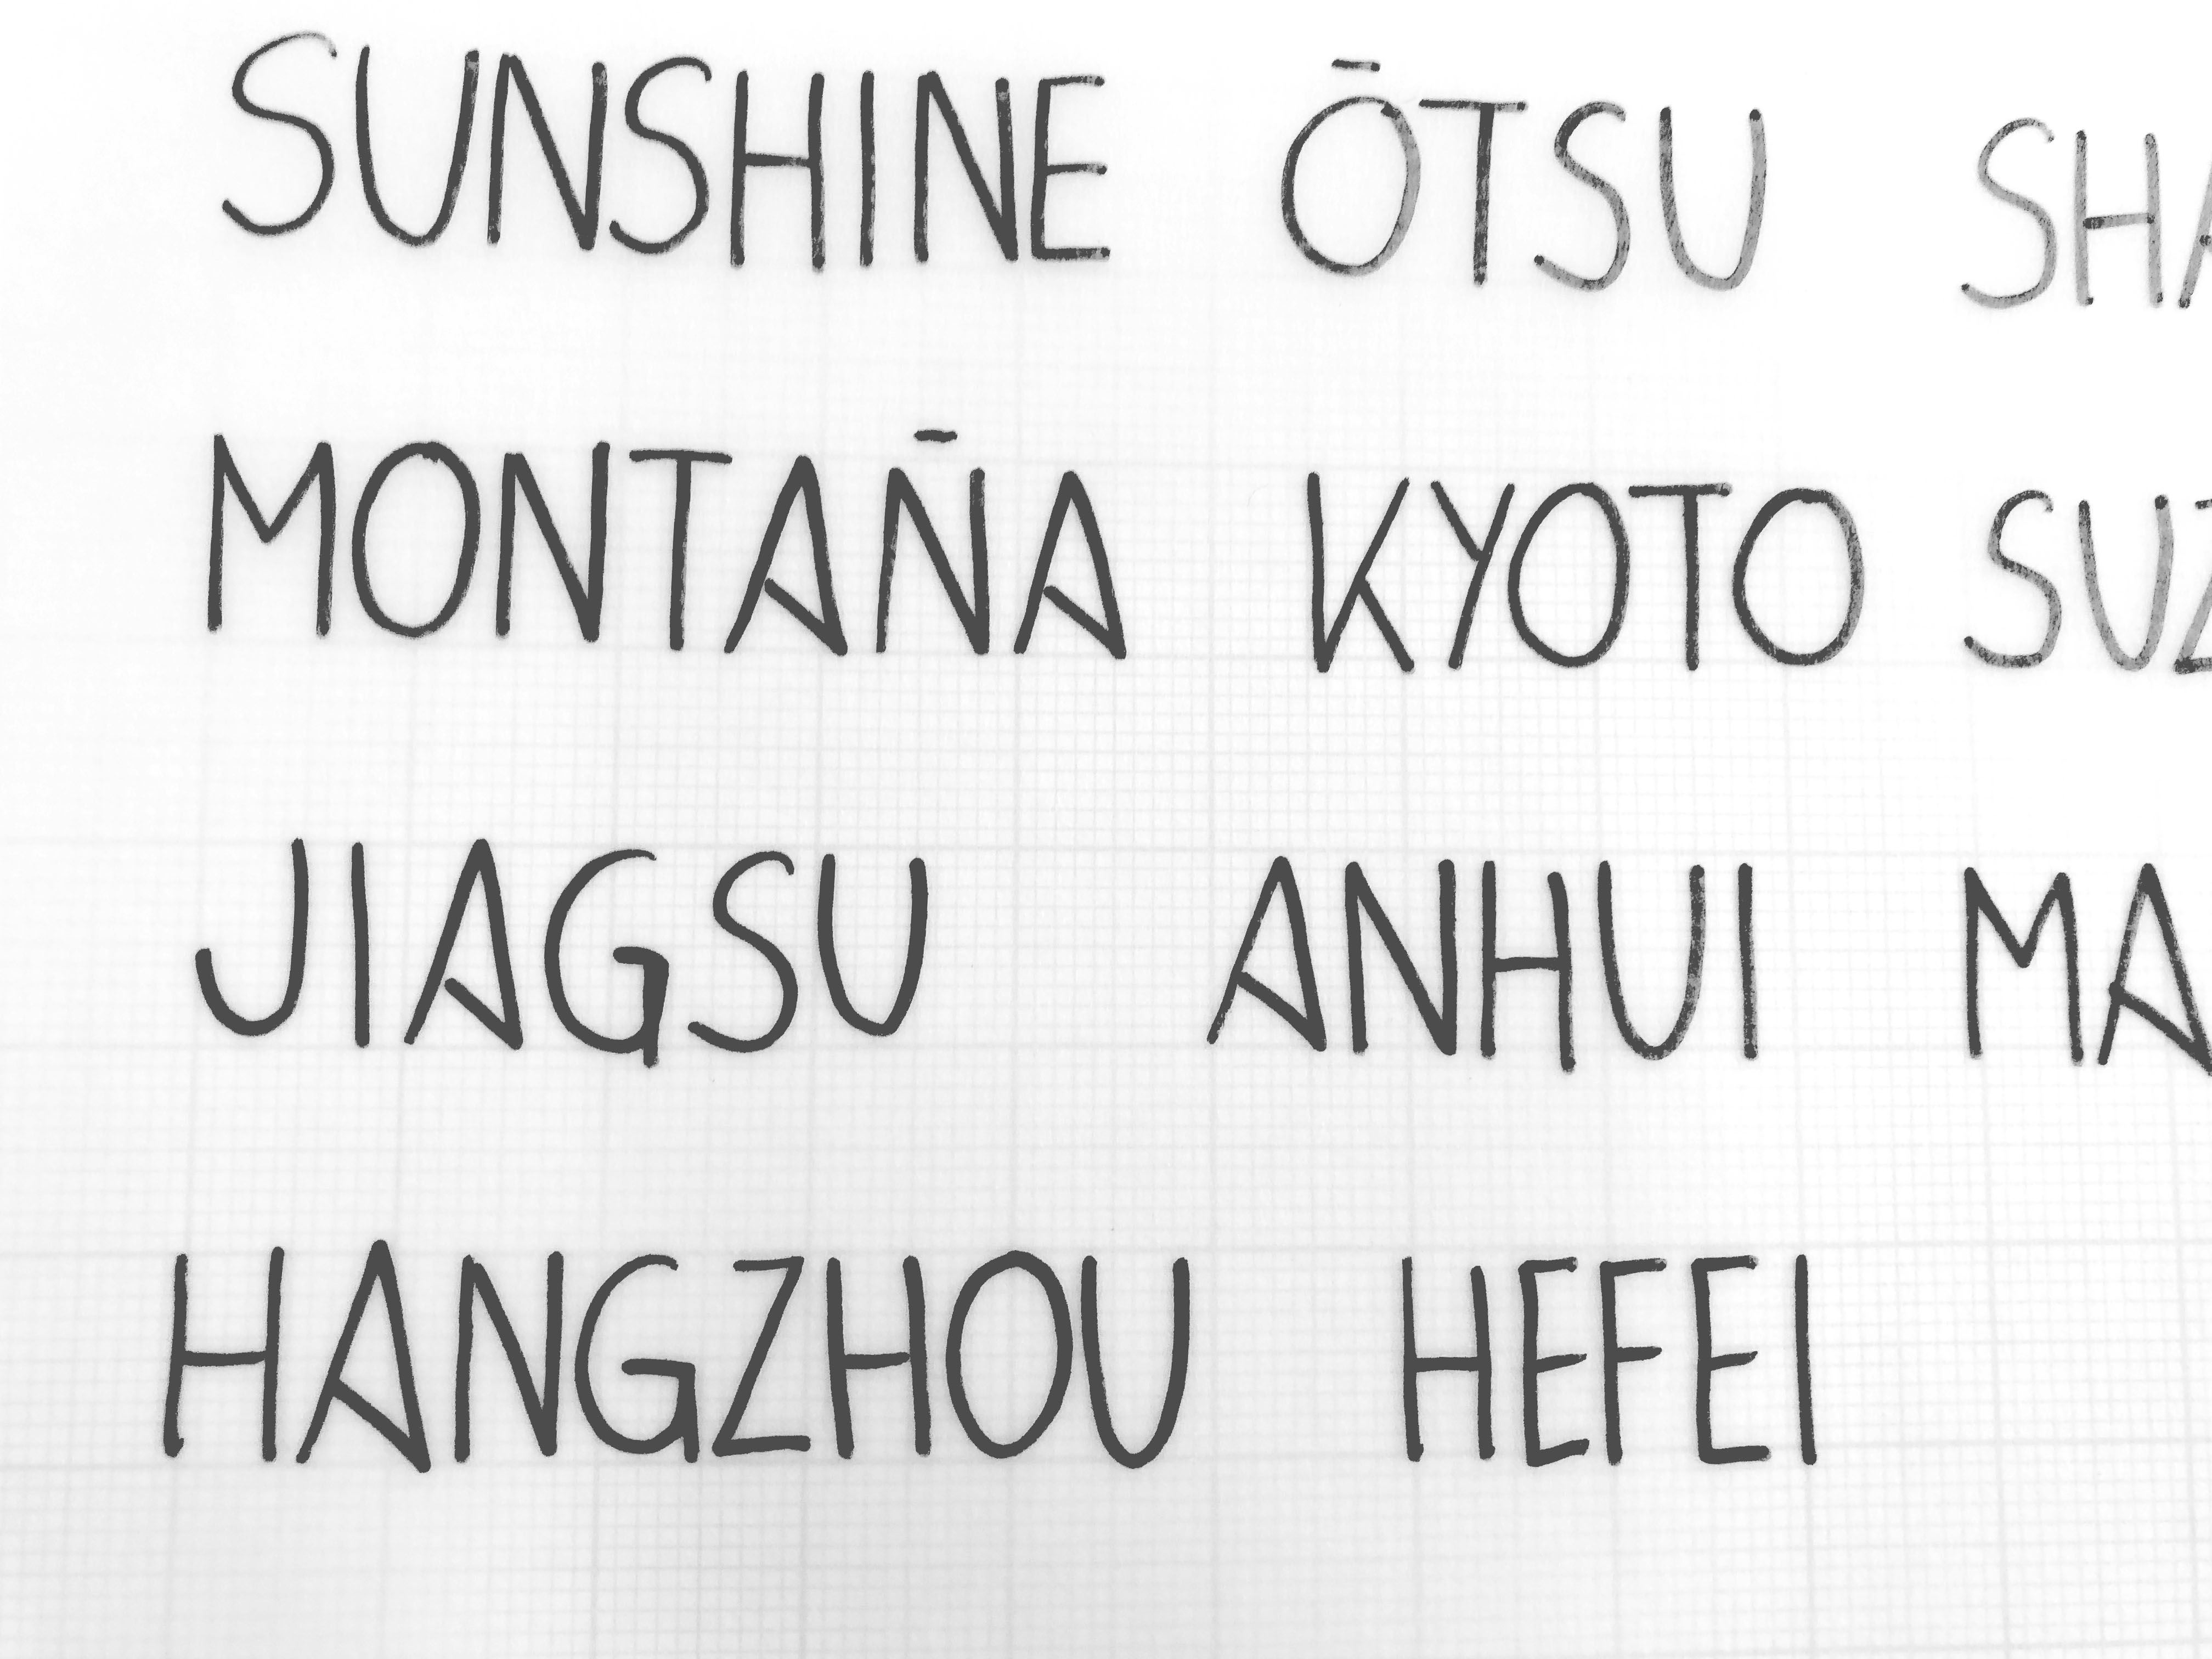 SUNSHINE ŌTSU SHA
MONTAÑA KYOTO SUZ
JIAGSU ANHUI MA
HANGZHOU HEFEI